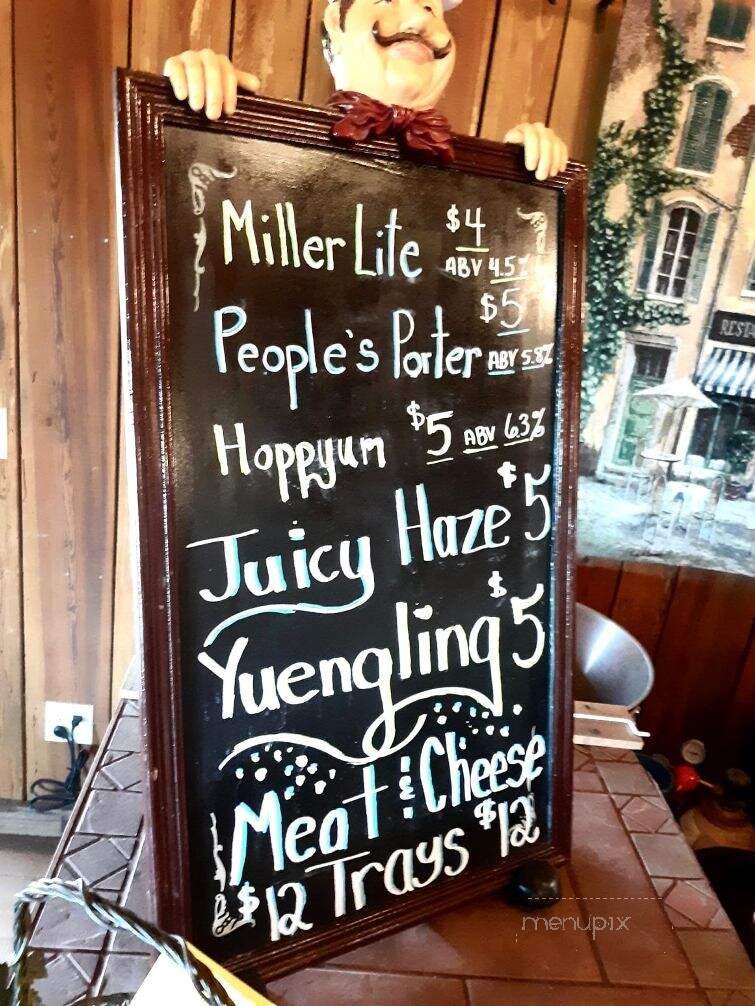 Miller Lite $4
ABV 4.5%
$5
People's Porter ABV 5.8%
Hoppyum $5 ABV 6.3%
Juicy Haze $5
Yuengling $5
Meat and Cheese
$12 Trays $12
menupix